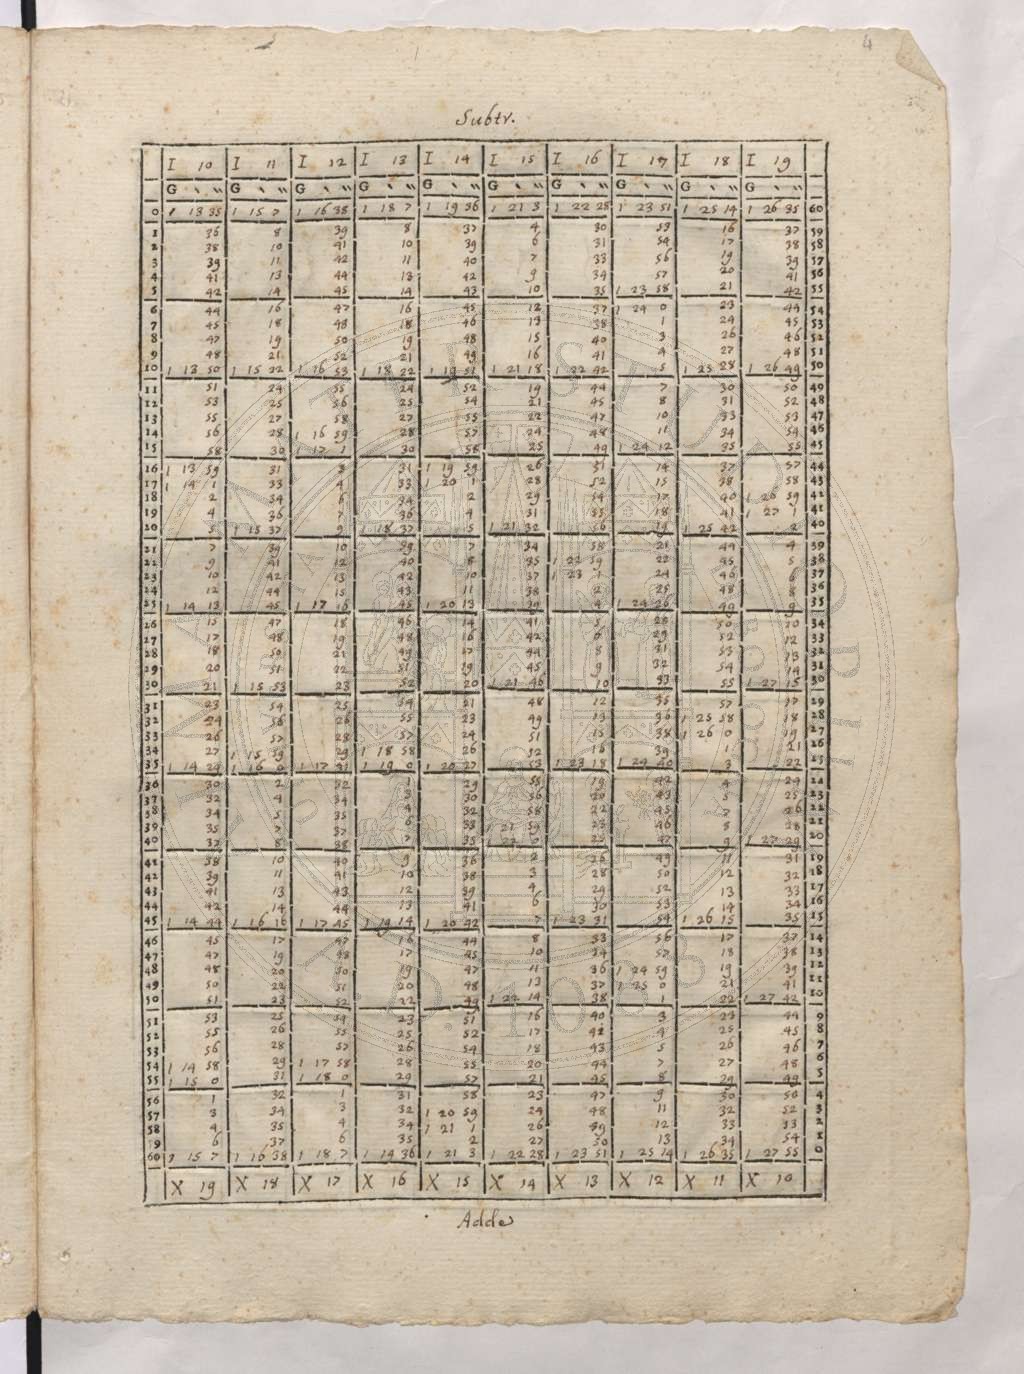 4
Subtr.
I 10 I 11 I 12 I 13 I 14 I 15 I 16 I 17 I 18 I 19
G ‵ ‶ G ‵ ‶ G ‵ ‶ G ‵ ‶ G ‵ ‶ G ‵ ‶ G ‵ ‶ G ‵ ‶ G ‵ ‶ G ‵ ‶
0 1 13 35 1 15 7 1 16 38 1 18 7 1 19 36 1 21 3 1 22 28 1 23 51 1 25 14 1 26 35 60
1 36 8 39 8 37 4 30 53 16 37 59
2 38 10 41 10 39 6 31 54 17 38 58
3 39 11 42 11 40 7 33 56 19 39 57
4 41 13 44 13 42 9 34 57 20 41 56
5 42 14 45 14 43 10 35 1 23 58 21 42 55
6 44 16 47 16 45 12 37 1 24 0 23 44 54
7 45 18 48 18 46 13 38 1 24 45 53
8 47 19 50 19 48 15 40 3 26 46 52
9 48 21 52 21 49 16 41 4 27 48 51
10 1 13 50 1 15 22 1 16 53 1 18 22 1 19 51 1 21 18 1 22 42 5 1 25 28 1 26 49 50
11 51 24 55 24 52 19 44 7 30 50 49
12 53 25 56 25 54 21 45 8 31 52 48
13 55 27 58 27 55 22 47 10 33 53 47
14 56 28 1 16 59 28 57 24 48 11 34 54 46
15 58 30 1 17 1 30 58 25 49 1 24 12 35 55 45
16 1 13 59 31 3 31 1 19 59 26 51 14 37 57 44
17 1 14 1 33 4 33 1 20 1 28 52 15 38 58 43
18 2 34 6 34 2 29 54 17 40 1 26 59 42
19 4 36 7 36 4 31 55 18 41 1 27 1 41
20 5 1 15 37 9 1 18 37 5 1 21 32 56 19 1 25 42 2 40
21 7 39 10 39 7 34 58 21 44 4 39
22 9 41 12 40 8 35 1 22 59 22 45 5 38
23 10 42 13 42 10 37 1 23 1 24 46 6 37
24 12 44 15 43 11 38 2 25 48 8 36
25 1 14 13 45 1 17 16 45 1 20 13 39 4 1 24 26 49 9 35
26 15 47 18 46 14 41 5 28 50 10 34
27 17 48 19 48 16 42 6 29 52 12 33
28 18 50 21 49 17 44 8 31 53 13 32
29 20 51 22 51 19 45 9 32 54 14 31
30 21 1 15 53 23 52 20 1 21 46 10 33 55 1 27 15 30
31 23 54 25 54 21 48 12 35 57 17 29
32 24 56 26 55 23 49 13 36 1 25 58 18 28
33 26 57 28 57 24 51 15 38 1 26 0 19 27
34 27 1 15 59 29 1 18 58 26 52 16 39 1 21 26
35 1 14 29 1 16 0 1 17 31 1 19 0 1 20 27 53 1 23 18 1 24 40 3 22 25
36 30 2 32 1 29 55 19 42 4 24 24
37 32 4 34 3 30 56 20 43 5 25 23
38 34 5 35 4 32 58 22 45 7 26 22
39 35 7 37 6 33 1 21 59 23 46 8 28 21
40 37 8 38 7 35 1 22 0 25 47 9 1 27 29 20
41 38 10 40 9 36 2 26 49 11 31 19
42 39 11 41 10 38 3 28 50 12 32 18
43 41 13 43 12 39 4 29 52 13 33 17
44 42 14 44 13 41 6 30 53 14 34 16
45 1 14 44 1 16 16 1 17 45 1 19 14 1 20 42 7 1 23 31 54 1 26 15 35 15
46 45 17 47 16 44 8 33 56 17 37 14
47 47 19 48 17 45 10 34 57 18 38 13
48 48 20 50 19 47 11 36 1 24 59 19 39 12
49 50 22 51 20 48 13 37 1 25 0 21 41 11
50 51 23 52 22 49 1 22 14 38 1 22 1 27 42 10
51 53 25 54 23 51 16 40 3 23 44 9
52 55 26 55 25 52 17 42 4 25 45 8
53 56 28 57 26 54 18 43 5 26 46 7
54 1 14 58 29 1 17 58 28 55 20 44 7 27 48 6
55 1 15 0 31 1 18 0 29 57 21 45 8 29 49 5
56 1 32 1 31 58 23 47 9 30 50 4
57 3 34 3 32 1 20 59 24 48 11 32 52 3
58 4 35 4 34 1 21 1 26 49 12 33 53 2
59 6 37 6 35 2 27 50 13 34 54 1
60 1 15 7 1 16 38 1 18 7 1 19 36 1 21 3 1 22 28 1 23 51 1 25 14 1 26 35 1 27 55 0
X 19 X 18 X 17 X 16 X 15 X 14 X 13 X 12 X 11 X 10
Adde